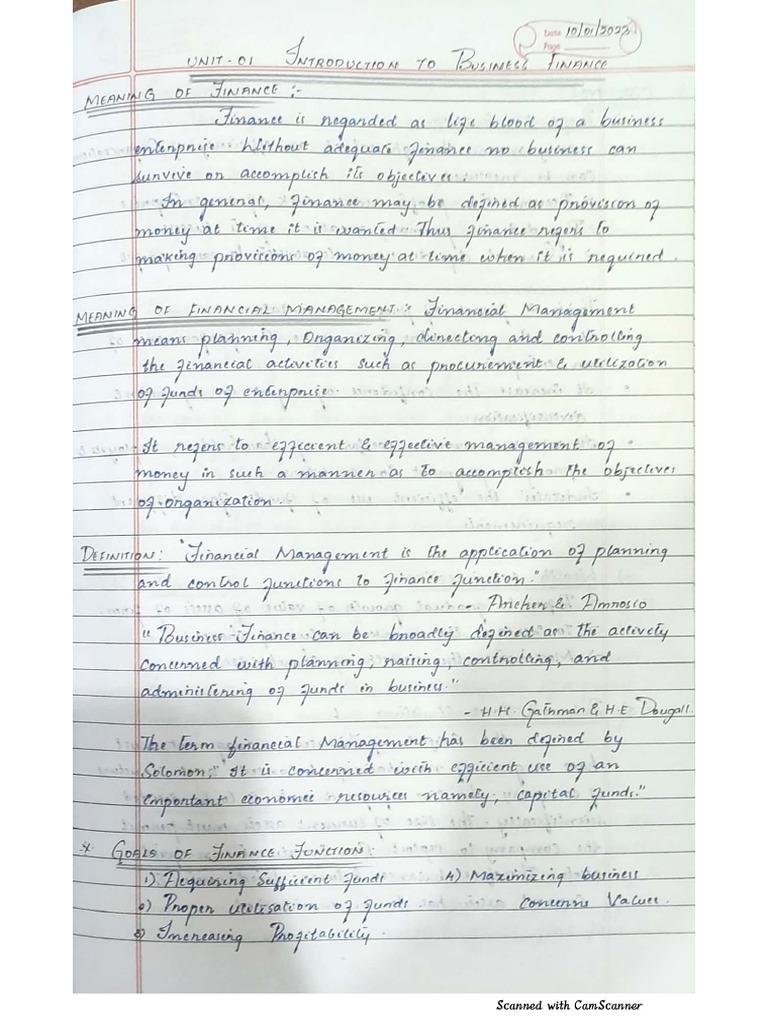 Date 10/01/2023
Page
UNIT-01 INTRODUCTION TO BUSINESS FINANCE
MEANING OF FINANCE :-
Finance is regarded as life blood of a business
enterprise. Without adequate finance no business can
survive or accomplish its objectives.
In general, finance may be defined as provision of
money at time it is wanted. Thus finance refers to
making provisions of money at time when it is required.
MEANING OF FINANCIAL MANAGEMENT: Financial Management
means planning, Organizing, directing and controlling
the financial activities such as procurement & utilization
of funds of enterprise.
It refers to efficient & effective management of
money in such a manner as to accomplish the objectives
of organization.
DEFINITION: "Financial Management is the application of planning
and control functions to finance function."
- Archer & Amrosio
"Business Finance can be broadly defined as the activity
concerned with planning, raising, controlling, and
administering of funds in business."
- H.H. Gathman & H.E Dougall.
The term financial Management has been defined by
Solomon, "It is concerned with efficient use of an
important economic resources namely, capital funds."
* GOALS OF FINANCE FUNCTION:
1) Acquiring Sufficient funds 4) Maximizing business
2) Proper utilisation of funds. concerns Values.
3) Increasing Profitability.
Scanned with CamScanner